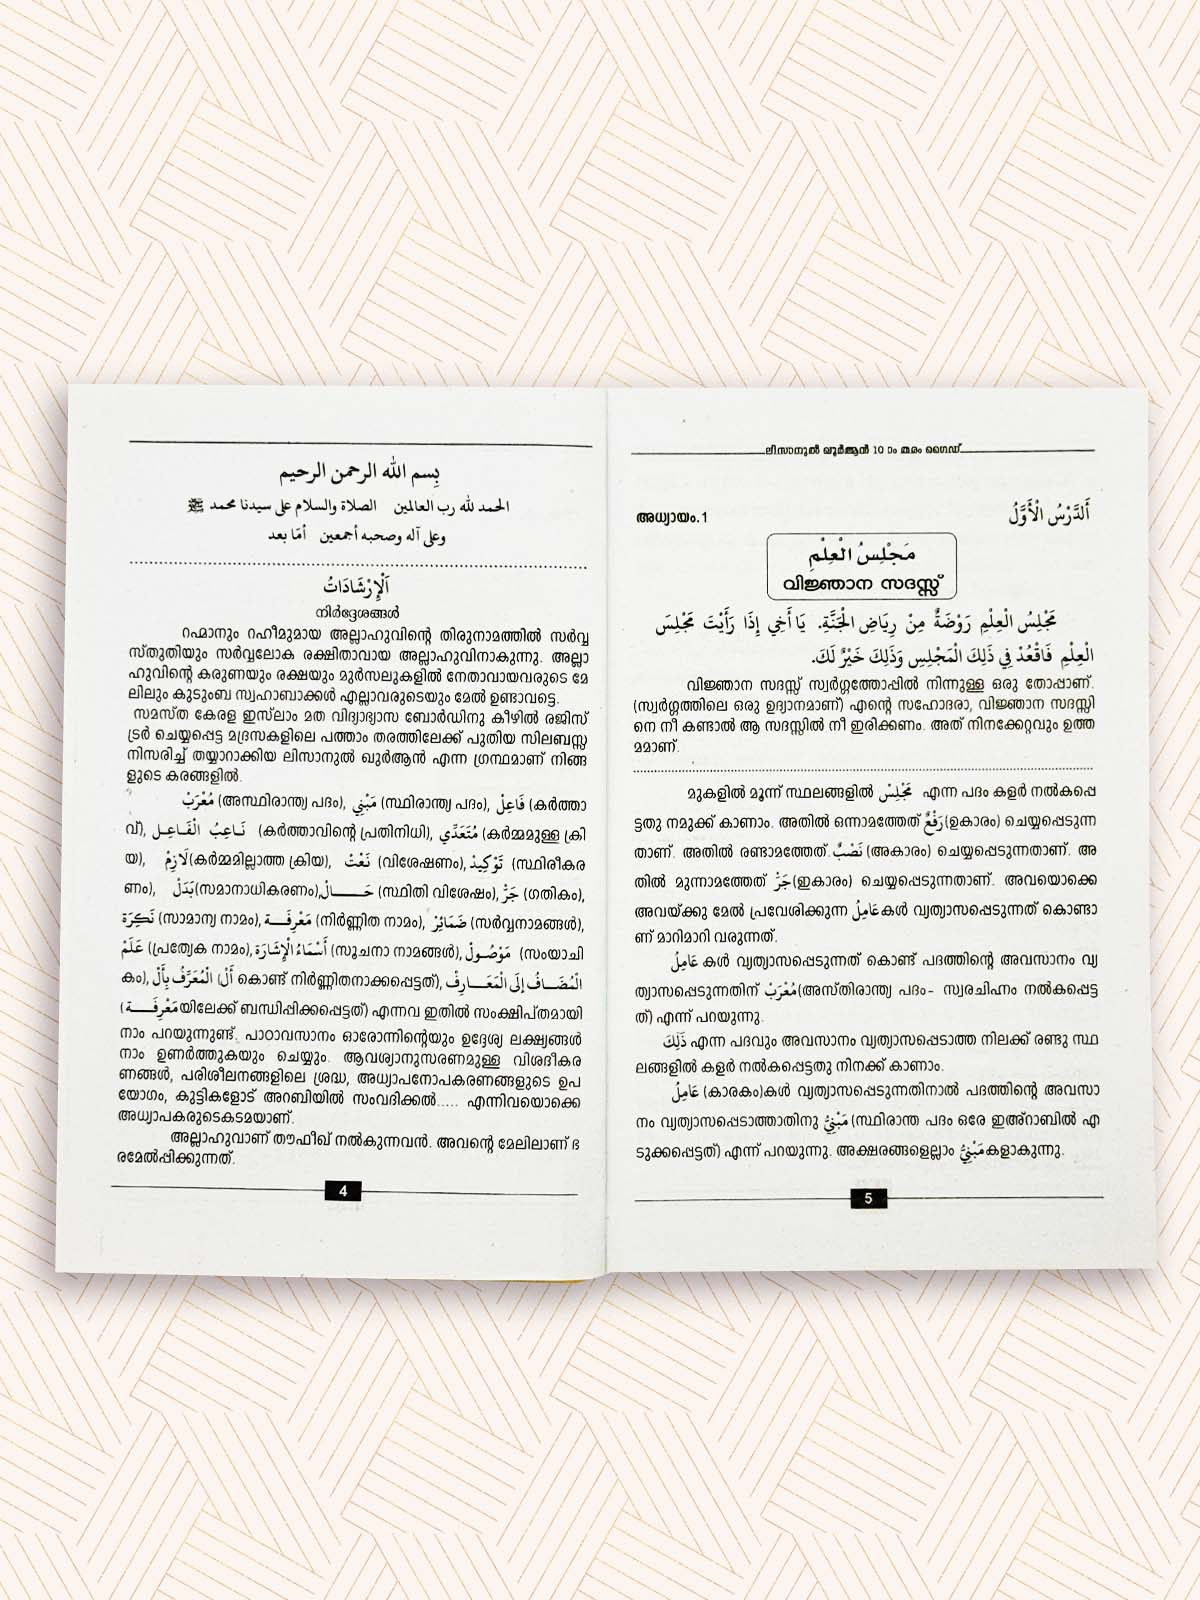 بِسم الله الرحمن الرحيم
الحمد لله رب العالمين الصلاة والسلام على سيدنا محمد ﷺ
وعلى آله وصحبه أجمعين أمّا بعد
اَلْإِرْشَادَاتُ
നിർദ്ദേശങ്ങൾ
റഹ്മാനും റഹീമുമായ അല്ലാഹുവിന്റെ തിരുനാമത്തിൽ സർവ്വ
സ്തുതിയും സർവ്വലോക രക്ഷിതാവായ അല്ലാഹുവിനാകുന്നു. അല്ലാ
ഹുവിന്റെ കരുണയും രക്ഷയും മുർസലുകളിൽ നേതാവായവരുടെ മേ
ലിലും കുടുംബ സ്വഹാബാക്കൾ എല്ലാവരുടെയും മേൽ ഉണ്ടാവട്ടെ.
സമസ്ത കേരള ഇസ്‌ലാം മത വിദ്യാഭ്യാസ ബോർഡിനു കീഴിൽ രജിസ്
ട്രർ ചെയ്യപ്പെട്ട മദ്രസകളിലെ പത്താം തരത്തിലേക്ക് പുതിയ സിലബസ്സ
നിസരിച്ച് തയ്യാറാക്കിയ ലിസാനുൽ ഖുർആൻ എന്ന ഗ്രന്ഥമാണ് നിങ്ങ
ളുടെ കരങ്ങളിൽ.
مُعْرَبْ (അസ്ഥിരാന്ത്യ പദം), مَبْنِي (സ്ഥിരാന്ത്യ പദം), فَاعِلْ (കർത്താ
വ്), نَـاعِبُ الْفَـاعِـل (കർത്താവിന്റെ പ്രതിനിധി), مُتَعَدِّي (കർമ്മമുള്ള ക്രി
യ), لَازِمْ(കർമ്മമില്ലാത്ത ക്രിയ), نَعْتْ (വിശേഷണം), تَوْكِيد (സ്ഥിരീകര
ണം), بَدَلْ(സമാനാധികരണം), حَـــالْ (സ്ഥിതി വിശേഷം), جَرّ (ഗതികം),
نَكِرَة (സാമാന്യ നാമം), مَعْرِفَـــة (നിർണ്ണിത നാമം), ضَمَائِرْ (സർവ്വനാമങ്ങൾ),
عَلَمْ (പ്രത്യേക നാമം), أَسْمَاءُ الْإِشَارَة (സൂചനാ നാമങ്ങൾ), مَوْصُـولْ (സംയാചി
കം), الْمُعَرَّفُ بِأَلْ (أَلْ കൊണ്ട് നിർണ്ണിതനാക്കപ്പെട്ടത്), الْمُضَـــافُ إِلَى الْمَعَـــارِفْ
(مَعْرِفَـــة യിലേക്ക് ബന്ധിപ്പിക്കപ്പെട്ടത്) എന്നവ ഇതിൽ സംക്ഷിപ്തമായി
നാം പറയുന്നുണ്ട്. പാഠാവസാനം ഓരോന്നിന്റെയും ഉദ്ദേശ്യ ലക്ഷ്യങ്ങൾ
നാം ഉണർത്തുകയും ചെയ്യും. ആവശ്യാനുസരണമുള്ള വിശദീകര
ണങ്ങൾ, പരിശീലനങ്ങളിലെ ശ്രദ്ധ, അധ്യാപനോപകരണങ്ങളുടെ ഉപ
യോഗം, കുട്ടികളോട് അറബിയിൽ സംവദിക്കൽ..... എന്നിവയൊക്കെ
അധ്യാപകരുടെകടമയാണ്.
അല്ലാഹുവാണ് തൗഫീഖ് നൽകുന്നവൻ. അവന്റെ മേലിലാണ് ഭ
രമേൽപ്പിക്കുന്നത്.
4
ലിസാനുൽ ഖുർആൻ 10 ാം തരം ഗൈഡ്
അധ്യായം.1 أَلدَّرْسُ الْأَوَّلُ
مَجْلِسُ الْعِلْمِ
വിജ്ഞാന സദസ്സ്
مَجْلِسُ الْعِلْمِ رَوْضَةٌ مِنْ رِيَاضِ الْجَنَّةِ. يَا أَخِي إِذَا رَأَيْتَ مَجْلِسَ
الْعِلْمِ فَاقْعُدْ فِي ذَلِكَ الْمَجْلِسِ وَذَلِكَ خَيْرٌ لَكَ.
വിജ്ഞാന സദസ്സ് സ്വർഗ്ഗത്തോപ്പിൽ നിന്നുള്ള ഒരു തോപ്പാണ്.
(സ്വർഗ്ഗത്തിലെ ഒരു ഉദ്യാനമാണ്) എന്റെ സഹോദരാ, വിജ്ഞാന സദസ്സി
നെ നീ കണ്ടാൽ ആ സദസ്സിൽ നീ ഇരിക്കണം. അത് നിനക്കേറ്റവും ഉത്ത
മമാണ്.
മുകളിൽ മൂന്ന് സ്ഥലങ്ങളിൽ مَجْلِسْ എന്ന പദം കളർ നൽകപ്പെ
ട്ടതു നമുക്ക് കാണാം. അതിൽ ഒന്നാമത്തേത് رَفْعٌ(ഉകാരം) ചെയ്യപ്പെടുന്ന
താണ്. അതിൽ രണ്ടാമത്തേത്.نَصْبٌ (അകാരം) ചെയ്യപ്പെടുന്നതാണ്. അ
തിൽ മുന്നാമത്തേത് جَرّ(ഇകാരം) ചെയ്യപ്പെടുന്നതാണ്. അവയൊക്കെ
അവയ്ക്കു മേൽ പ്രവേശിക്കുന്ന عَامِلُ കൾ വ്യത്യാസപ്പെടുന്നത് കൊണ്ടാ
ണ് മാറിമാറി വരുന്നത്.
عَامِلُ കൾ വ്യത്യാസപ്പെടുന്നത് കൊണ്ട് പദത്തിന്റെ അവസാനം വ്യ
ത്യാസപ്പെടുന്നതിന് مُعْرَبْ(അസ്തിരാന്ത്യ പദം– സ്വരചിഹ്നം നൽകപ്പെട്ട
ത്) എന്ന് പറയുന്നു.
ذَلِكَ എന്ന പദവും അവസാനം വ്യത്യാസപ്പെടാത്ത നിലക്ക് രണ്ടു സ്ഥ
ലങ്ങളിൽ കളർ നൽകപ്പെട്ടതു നിനക്ക് കാണാം.
عَامِلُ (കാരകം)കൾ വ്യത്യാസപ്പെടുന്നതിനാൽ പദത്തിന്റെ അവസാ
നം വ്യത്യാസപ്പെടാത്തതിനു مَبْنِيُّ (സ്ഥിരാന്ത പദം ഒരേ ഇഅ്റാബിൽ എ
ടുക്കപ്പെട്ടത്) എന്ന് പറയുന്നു. അക്ഷരങ്ങളെല്ലാം مَبْنِيُّ കളാകുന്നു.
5